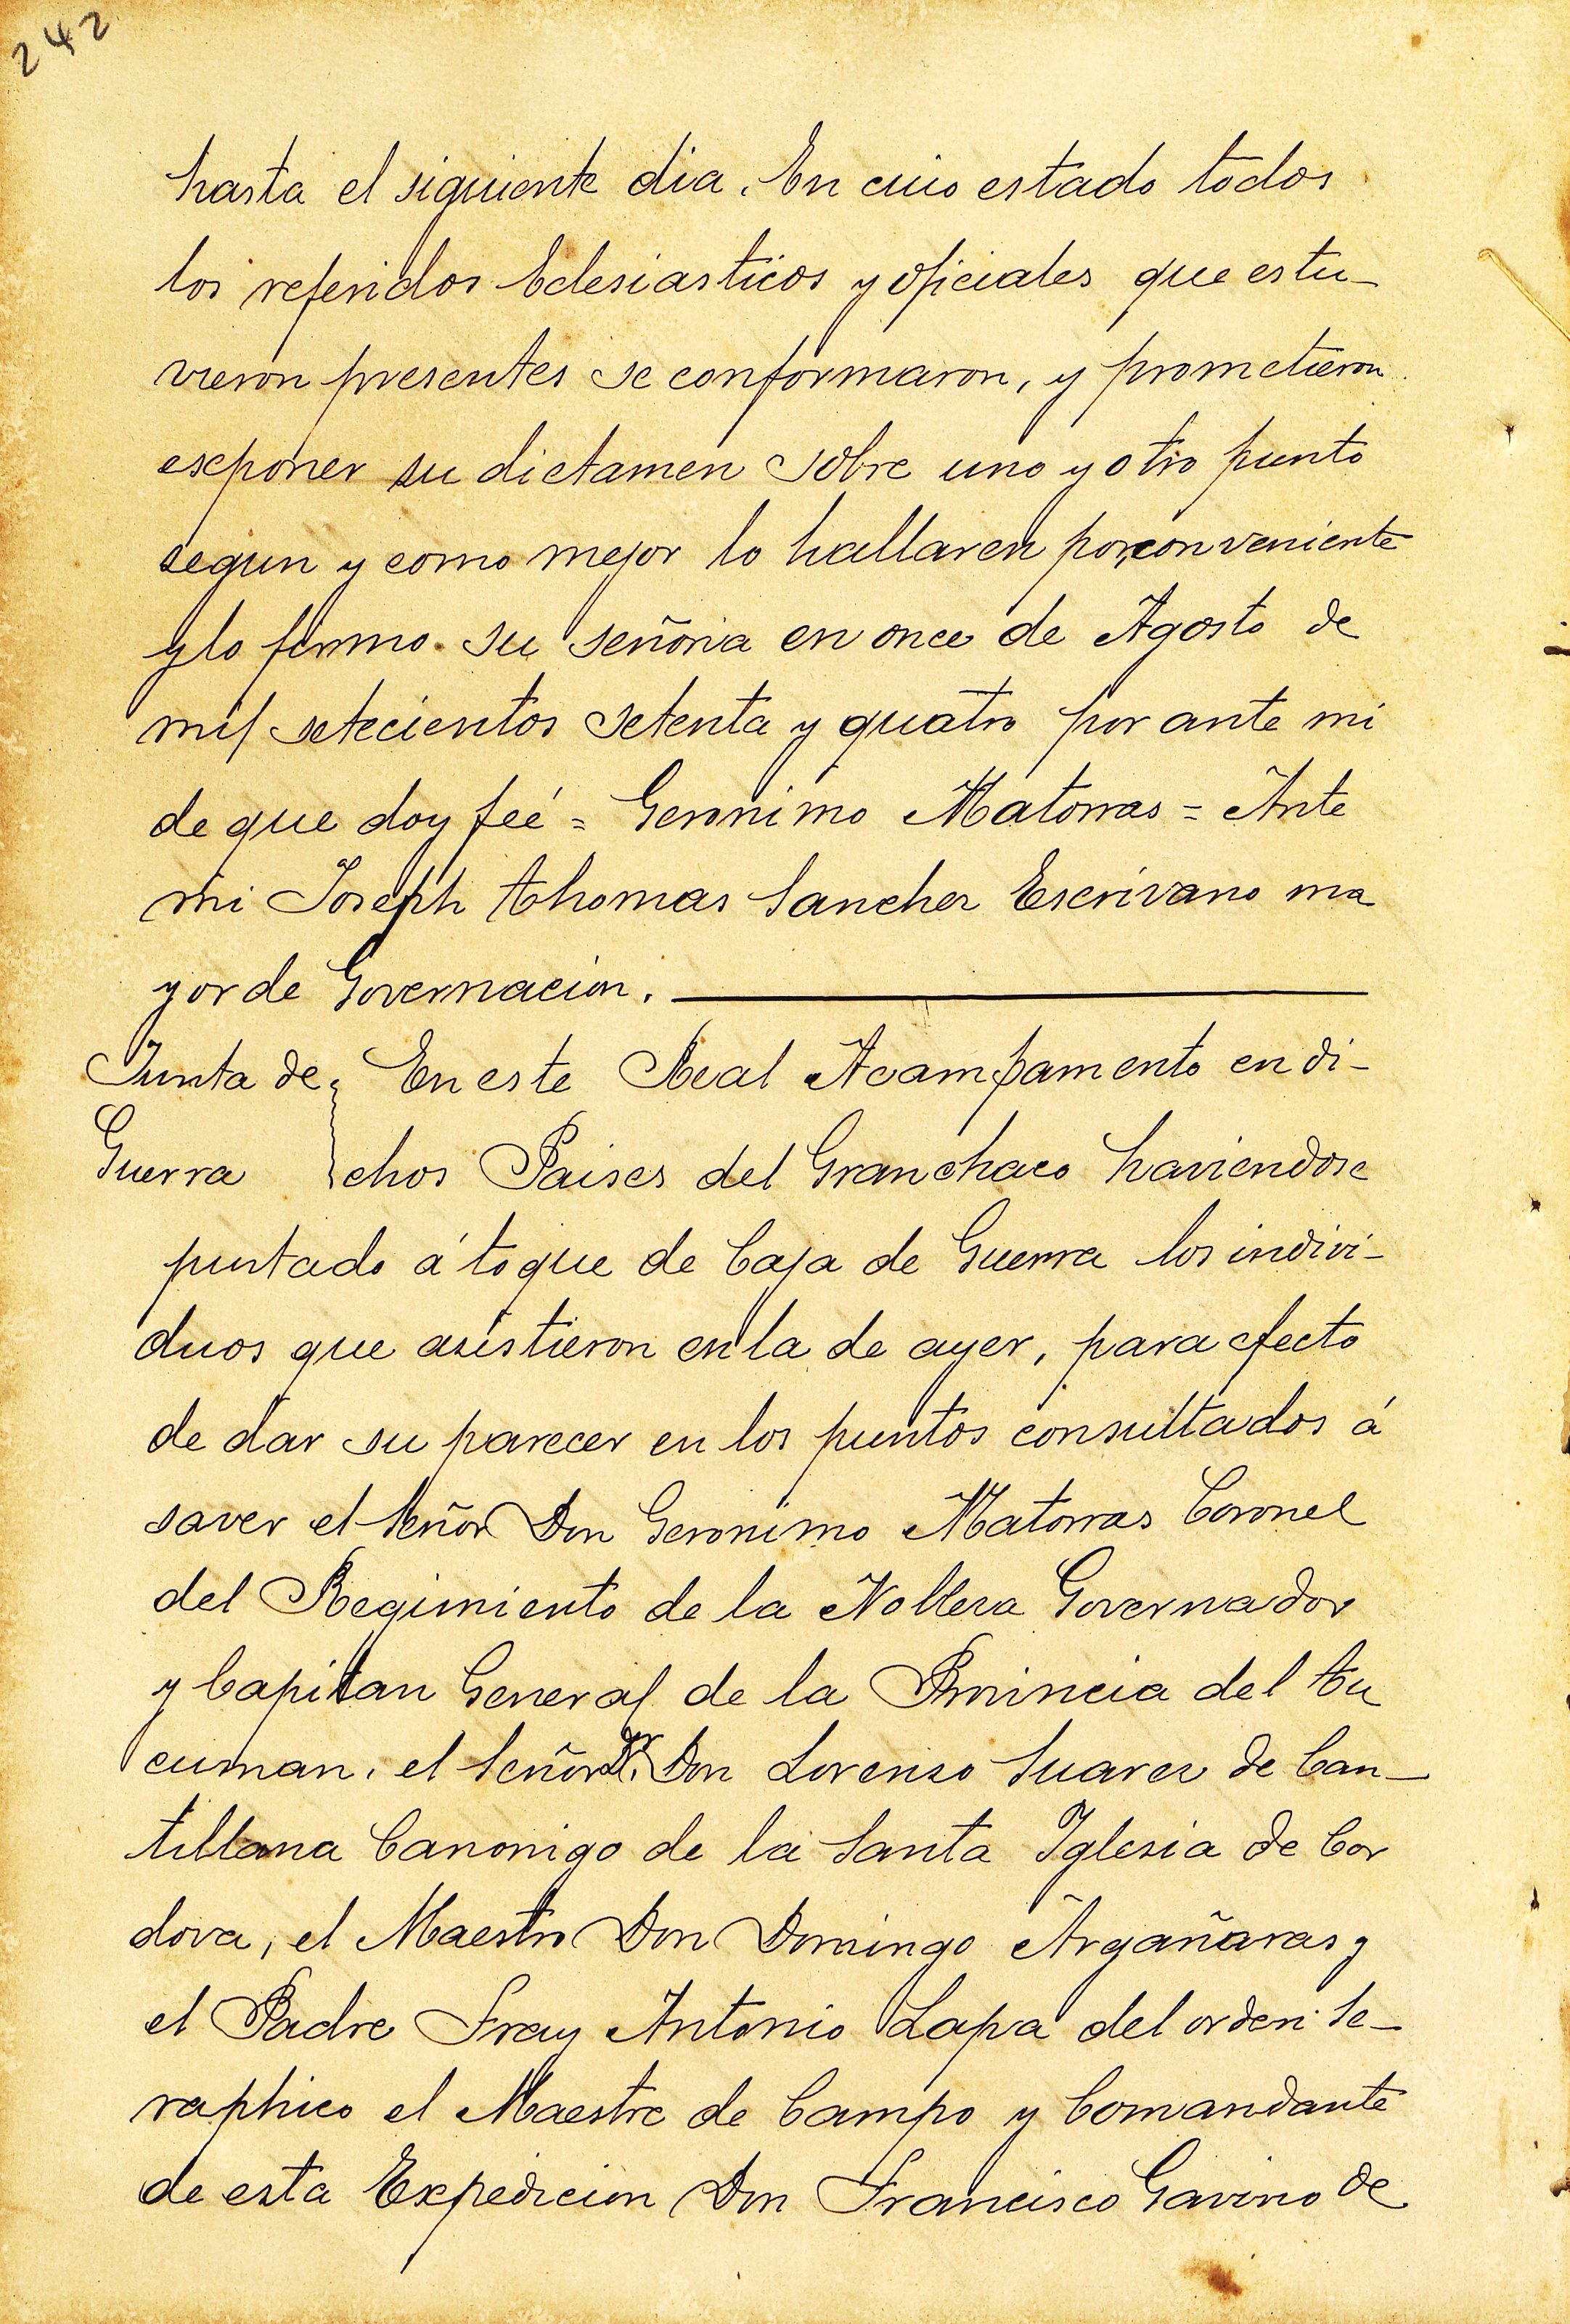 242
hasta el siguiente dia. En cuio estado todos
los referidos Eclesiasticos y oficiales que estu-
vieron presentes se conformaron, y prometieron
exponer su dictamen sobre uno y otro punto
segun y como mejor lo hallaren por conveniente
y lo firmo su señoria en once de Agosto de
mil setecientos setenta y quatro por ante mi
de que doy feé = Geronimo Matorras = Ante
mi Joseph Thomas Sanchez Escrivano ma
yor de Governacion.
Junta de En este Real Acampamento en di-
Guerra chos Paises del Granchaco haviendose
puntado á toque de Caja de Guerra los indivi-
duos que asistieron en la de ayer, para efecto
de dar su parecer en los puntos consultados á
saver el Señor Don Geronimo Matorras Coronel
del Regimiento de la Nobleza Governador
y Capitan General de la Provincia del Tu
cuman, el Señor Dr. Don Lorenzo Suarez de Can-
tillana Canonigo de la Santa Iglesia de Cor
dova, el Maestro Don Domingo Argañaras y
el Padre Fray Antonio Lapa del orden Se-
raphico el Maestre de Campo y Comandante
de esta Expedicion Don Francisco Gavino de